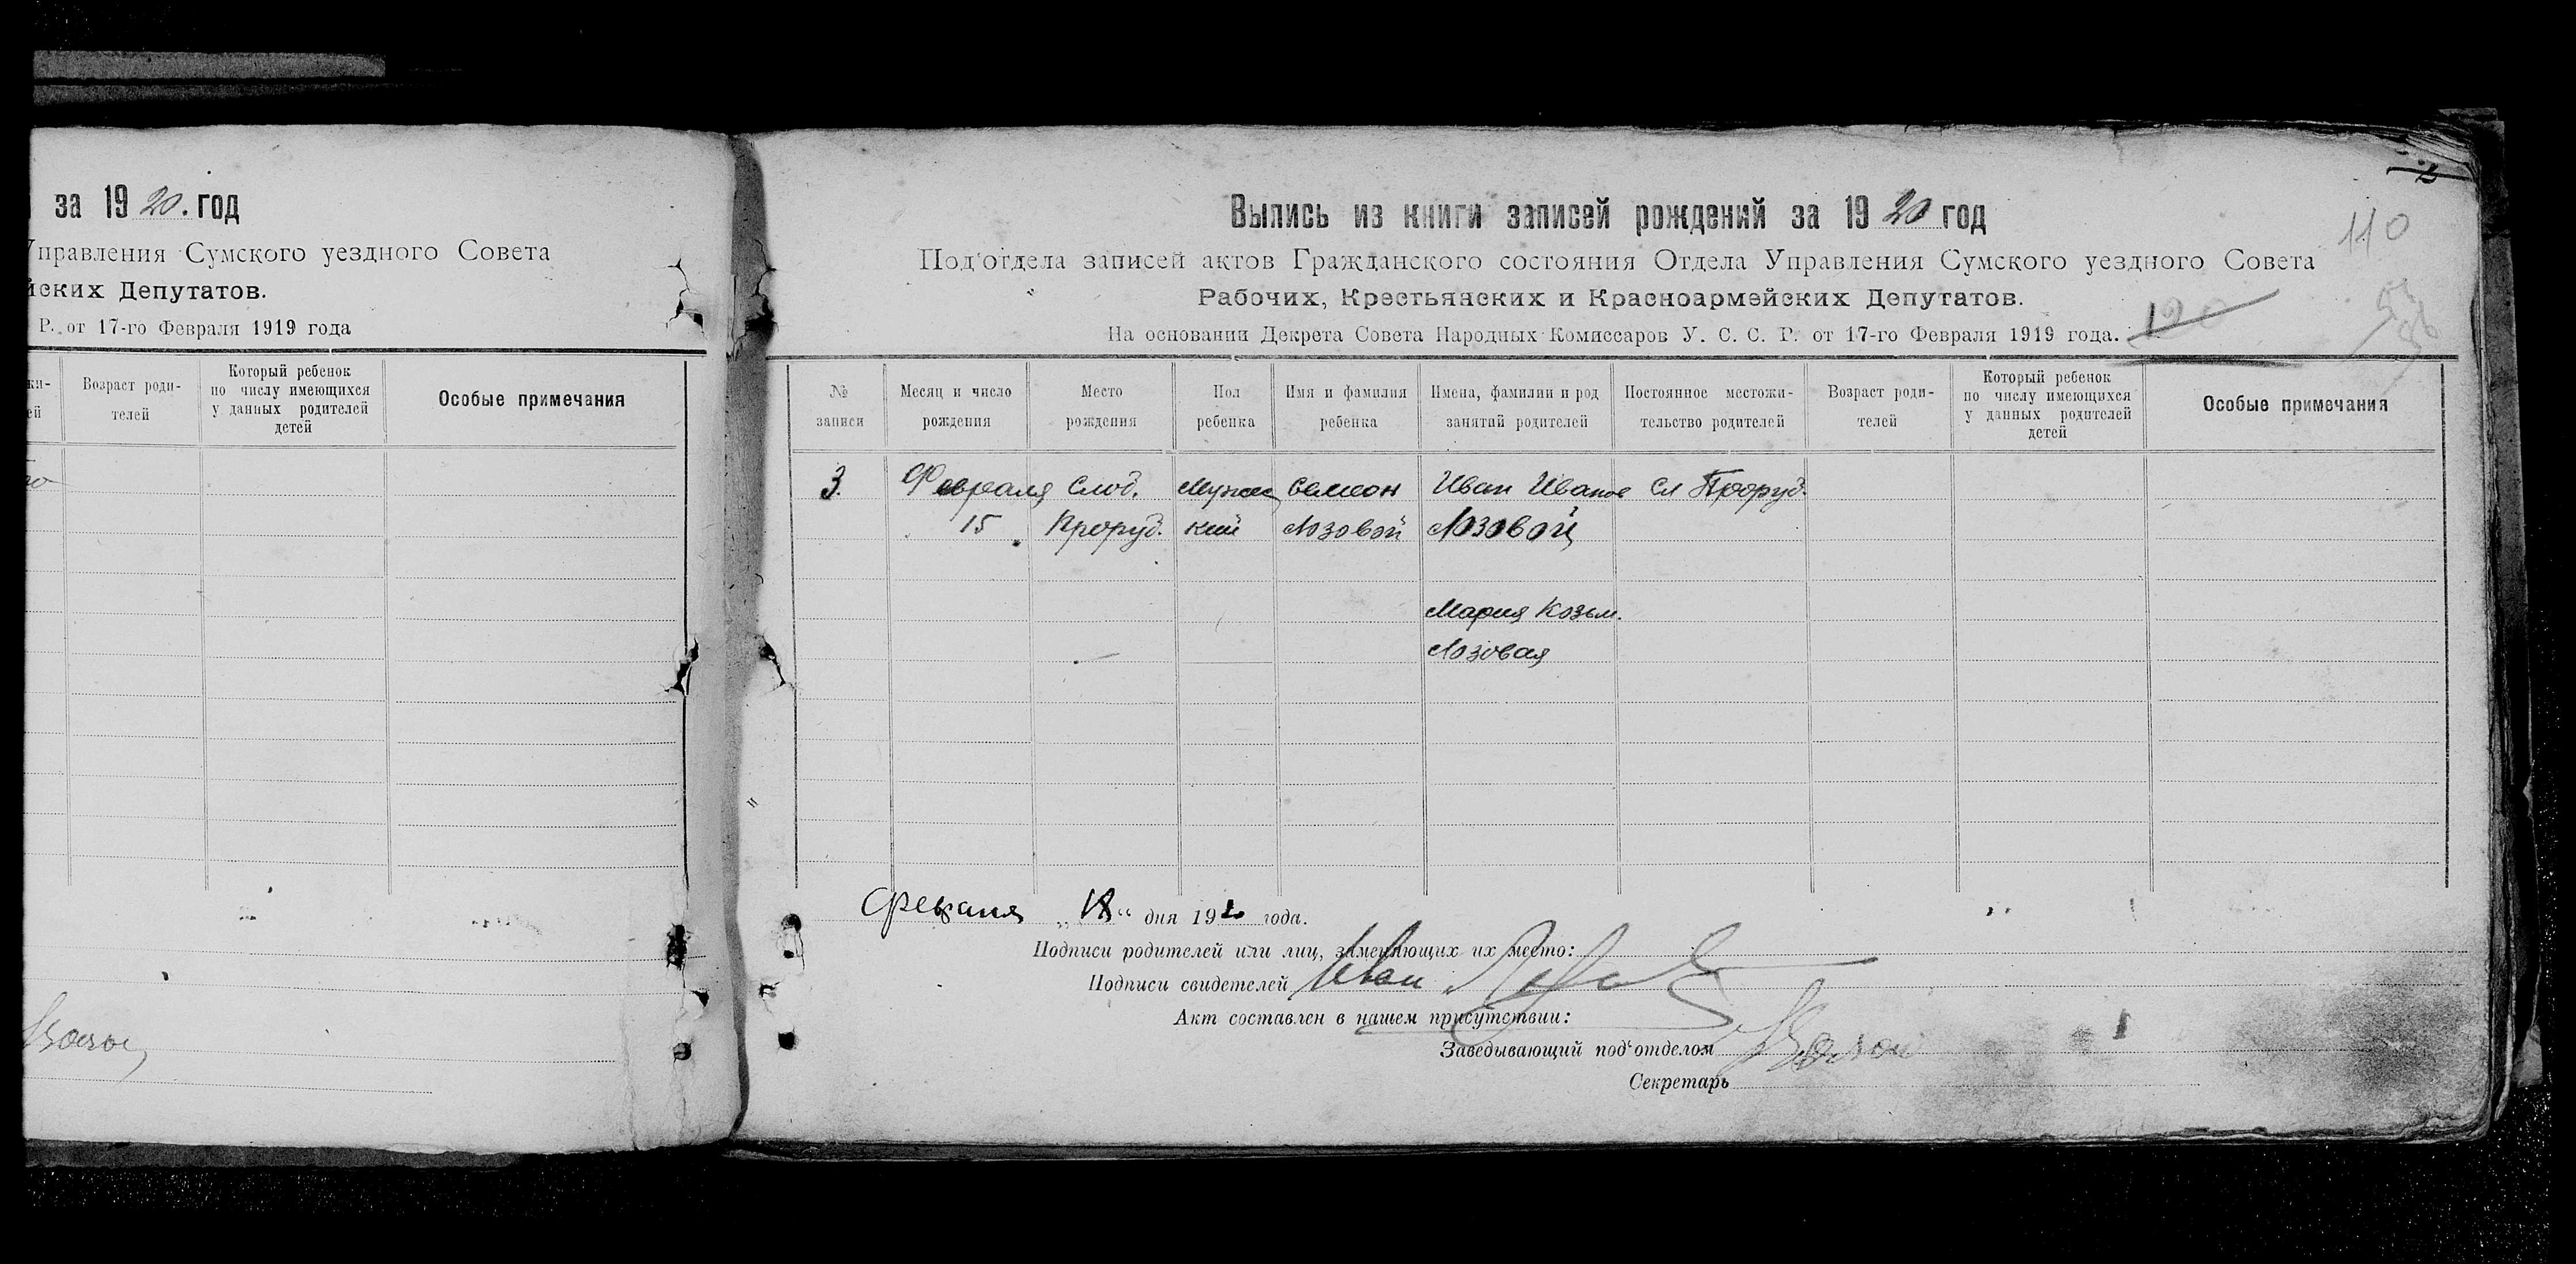 за 1920. год
Управления Сумского уездного Совета
йских Депутатов.
Р. от 17-го Февраля 1919 года
ки-
ей
Возраст роди-
телей
Который ребенок
по числу имеющихся
у данных родителей
детей
Особые примечания
110
Выпись из книги записей рождений за 1920 год
Под‘отдела записей актов Гражданского состояния Отдела Управления Сумского уездного Совета
Рабочих, Крестьянских и Красноармейских Депутатов.
На основании Декрета Совета Народных Комиссаров У. С. С. Р. от 17-го Февраля 1919 года.
№
записи
Месяц и число
рождения
Место
рождения
Пол
ребенка
Имя и фамилия
ребенка
Имена, фамилии и род
занятий родителей
Постоянное местожи-
тельство родителей
Возраст роди-
телей
Который ребенок
по числу имеющихся
у данных родителей
детей
Особые примечания
3. Февраля Слод. Мужес Семион Иван Иванов Сл Проруд.
15 Проруд. кий Лозовой Лозовой
Мария Козьм.
Лозовая
Февраля „18“ дня 192 года.
Подписи родителей или лиц, заменяющих их место:
Подписи свидетелей Иван
Акт составлен в нашем присутствии:
Заведывающий под‘отделом
Секретарь